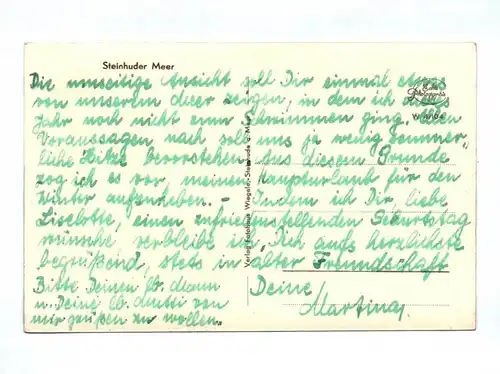 Steinhuder Meer
Die umseitige Ansicht soll Dir einmal etwas
von unserem Meer zeigen, in dem ich dies
Jahr noch nicht zum Schwimmen ging. Allen
Voraussagen, nach soll uns ja wenig sommer-
liche Hitze bevorstehen. Aus diesem Grunde
zog ich es vor, meinen Haupturlaub für den
Winter aufzuheben. - Indem ich Dir, liebe
Liselotte, einen zufriedenstellenden Geburtstag
wünsche verbleibe ich, Dich aufs herzlichste
begrüßend, stets in alter Freundschaft
Deine
Martina
Bitte Deinen lb. Mann
u. Deine lb. Mutti von
mir grüßen zu wollen.
Verlag Fotohaus Wiegels, Steinhude a. Meer